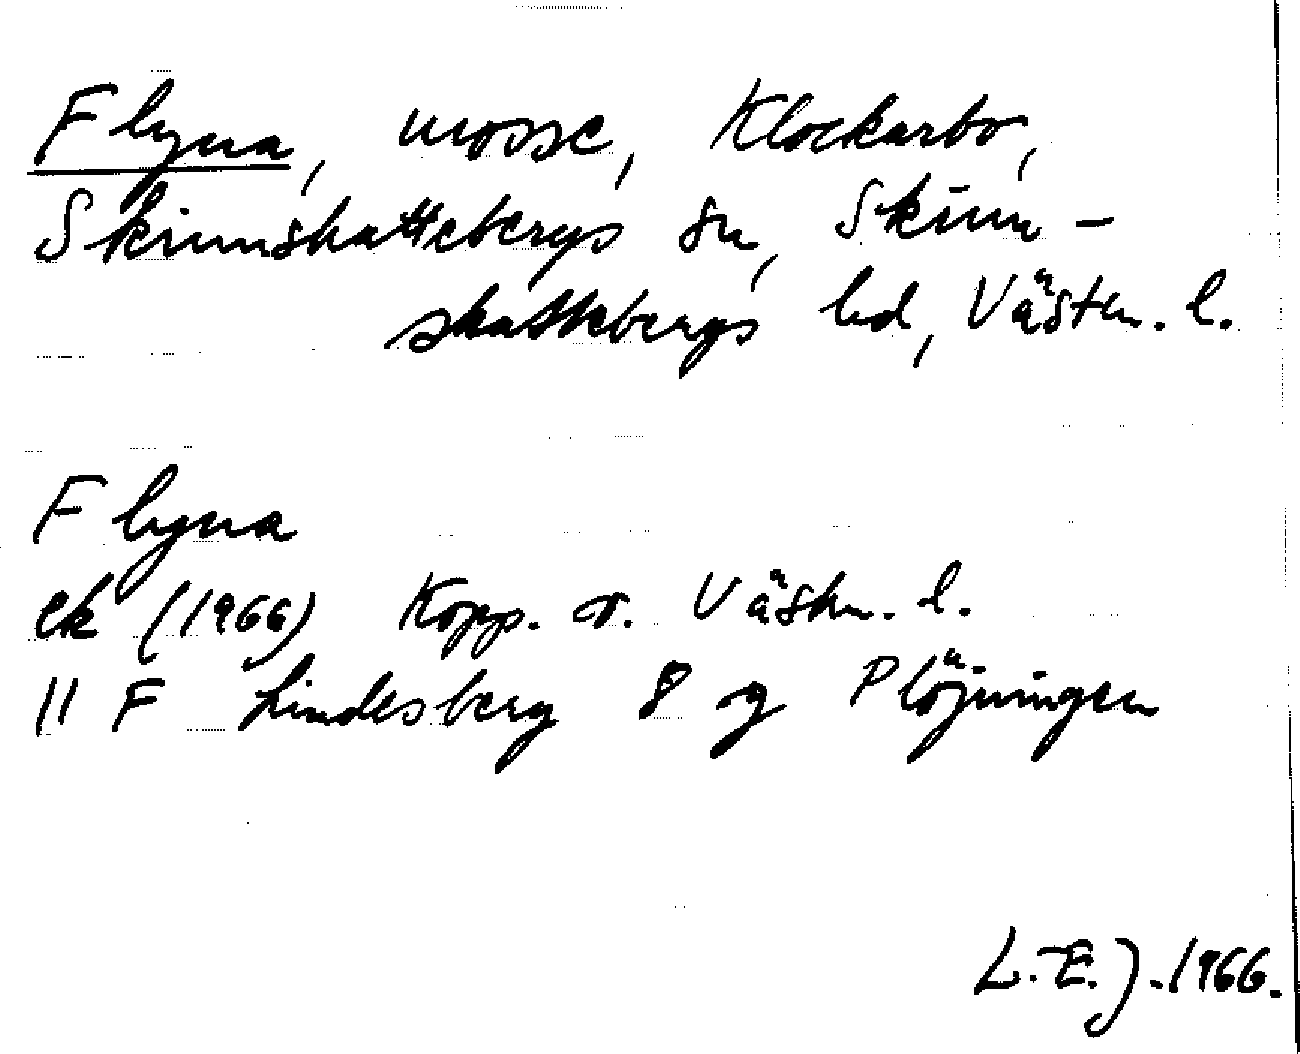 Flyna, mosse, Klockarbo,
Skinnskattebergs sn, Skinn-
skattebergs hd, Västm. l.
Flyna
ek (1966) Kopp. o. Västm. l.
11 F Lindesberg 8 g Plöjningen
L.E.J. 1966.